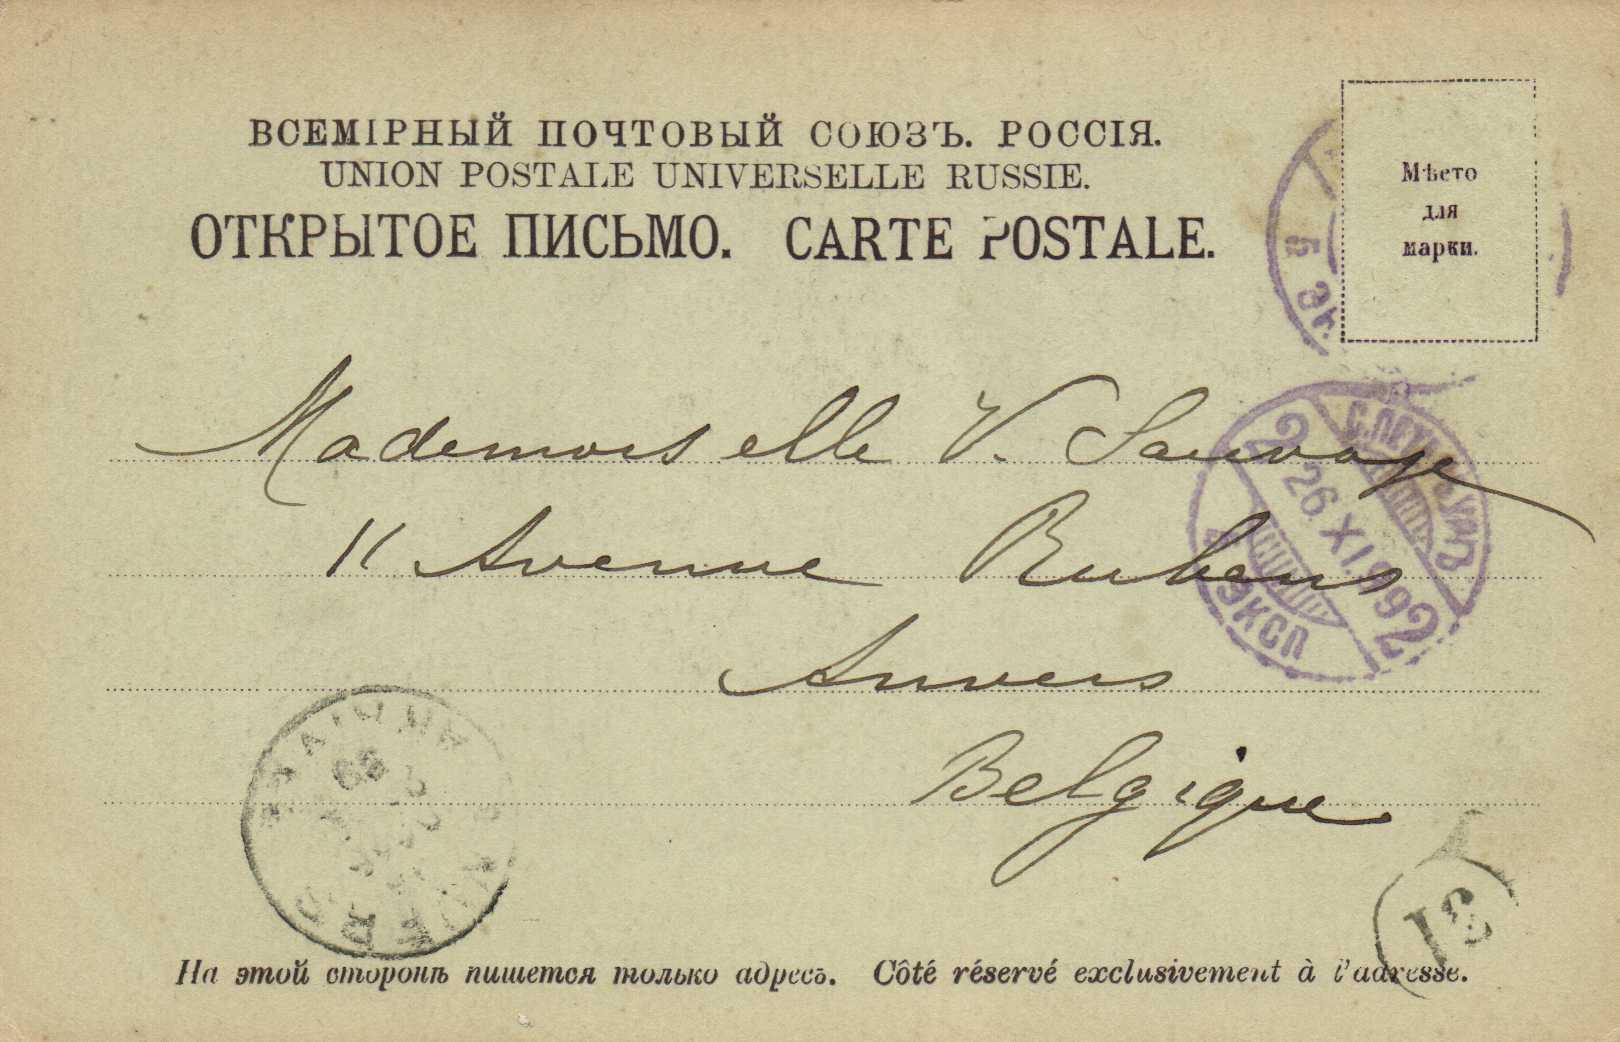 ВСЕМІРНЫЙ ПОЧТОВЫЙ СОЮЗЪ. РОССІЯ.
UNION POSTALE UNIVERSELLE RUSSIE.
ОТКРЫТОЕ ПИСЬМО. CARTE POSTALE.
Мѣсто
для
марки.
5
Mademoiselle V. Sauvage
11 Avenue Rubens
Anvers
Belgique
2
26 XI
2
ЭКСП
31
На этой сторонѣ пишется только адресъ. Côté réservé exclusivement à l'adresse.